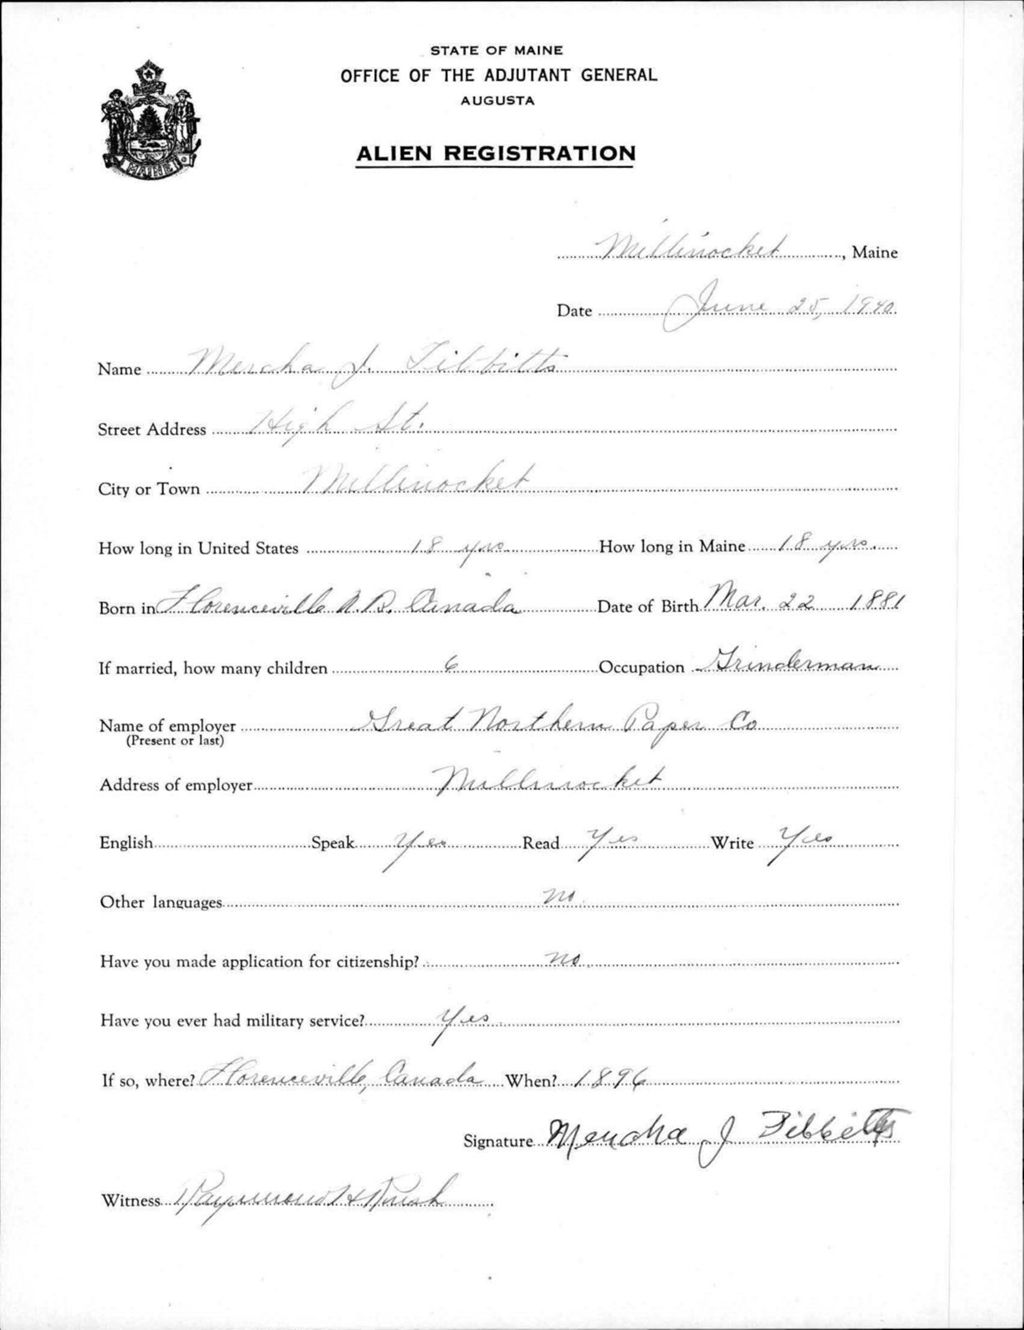 STATE OF MAINE
OFFICE OF THE ADJUTANT GENERAL
AUGUSTA
ALIEN REGISTRATION
MAINE
Millinocket, Maine
Date June 25, 1940
Name Mercha J. Tibbitts
Street Address High St.
City or Town Millinocket
How long in United States 18 yrs How long in Maine 18 yrs.
Born in Florenceville N.B. Canada Date of Birth Mar. 22 1881
If married, how many children 6 Occupation Grinderman
Name of employer Great Northern Paper Co
(Present or last)
Address of employer Millinocket
English Speak Yes Read Yes Write Yes
Other languages no
Have you made application for citizenship? no
Have you ever had military service? Yes
If so, where? Florenceville, Canada When? 1896
Signature Mercha J Tibbitts
Witness Raymond H Rush